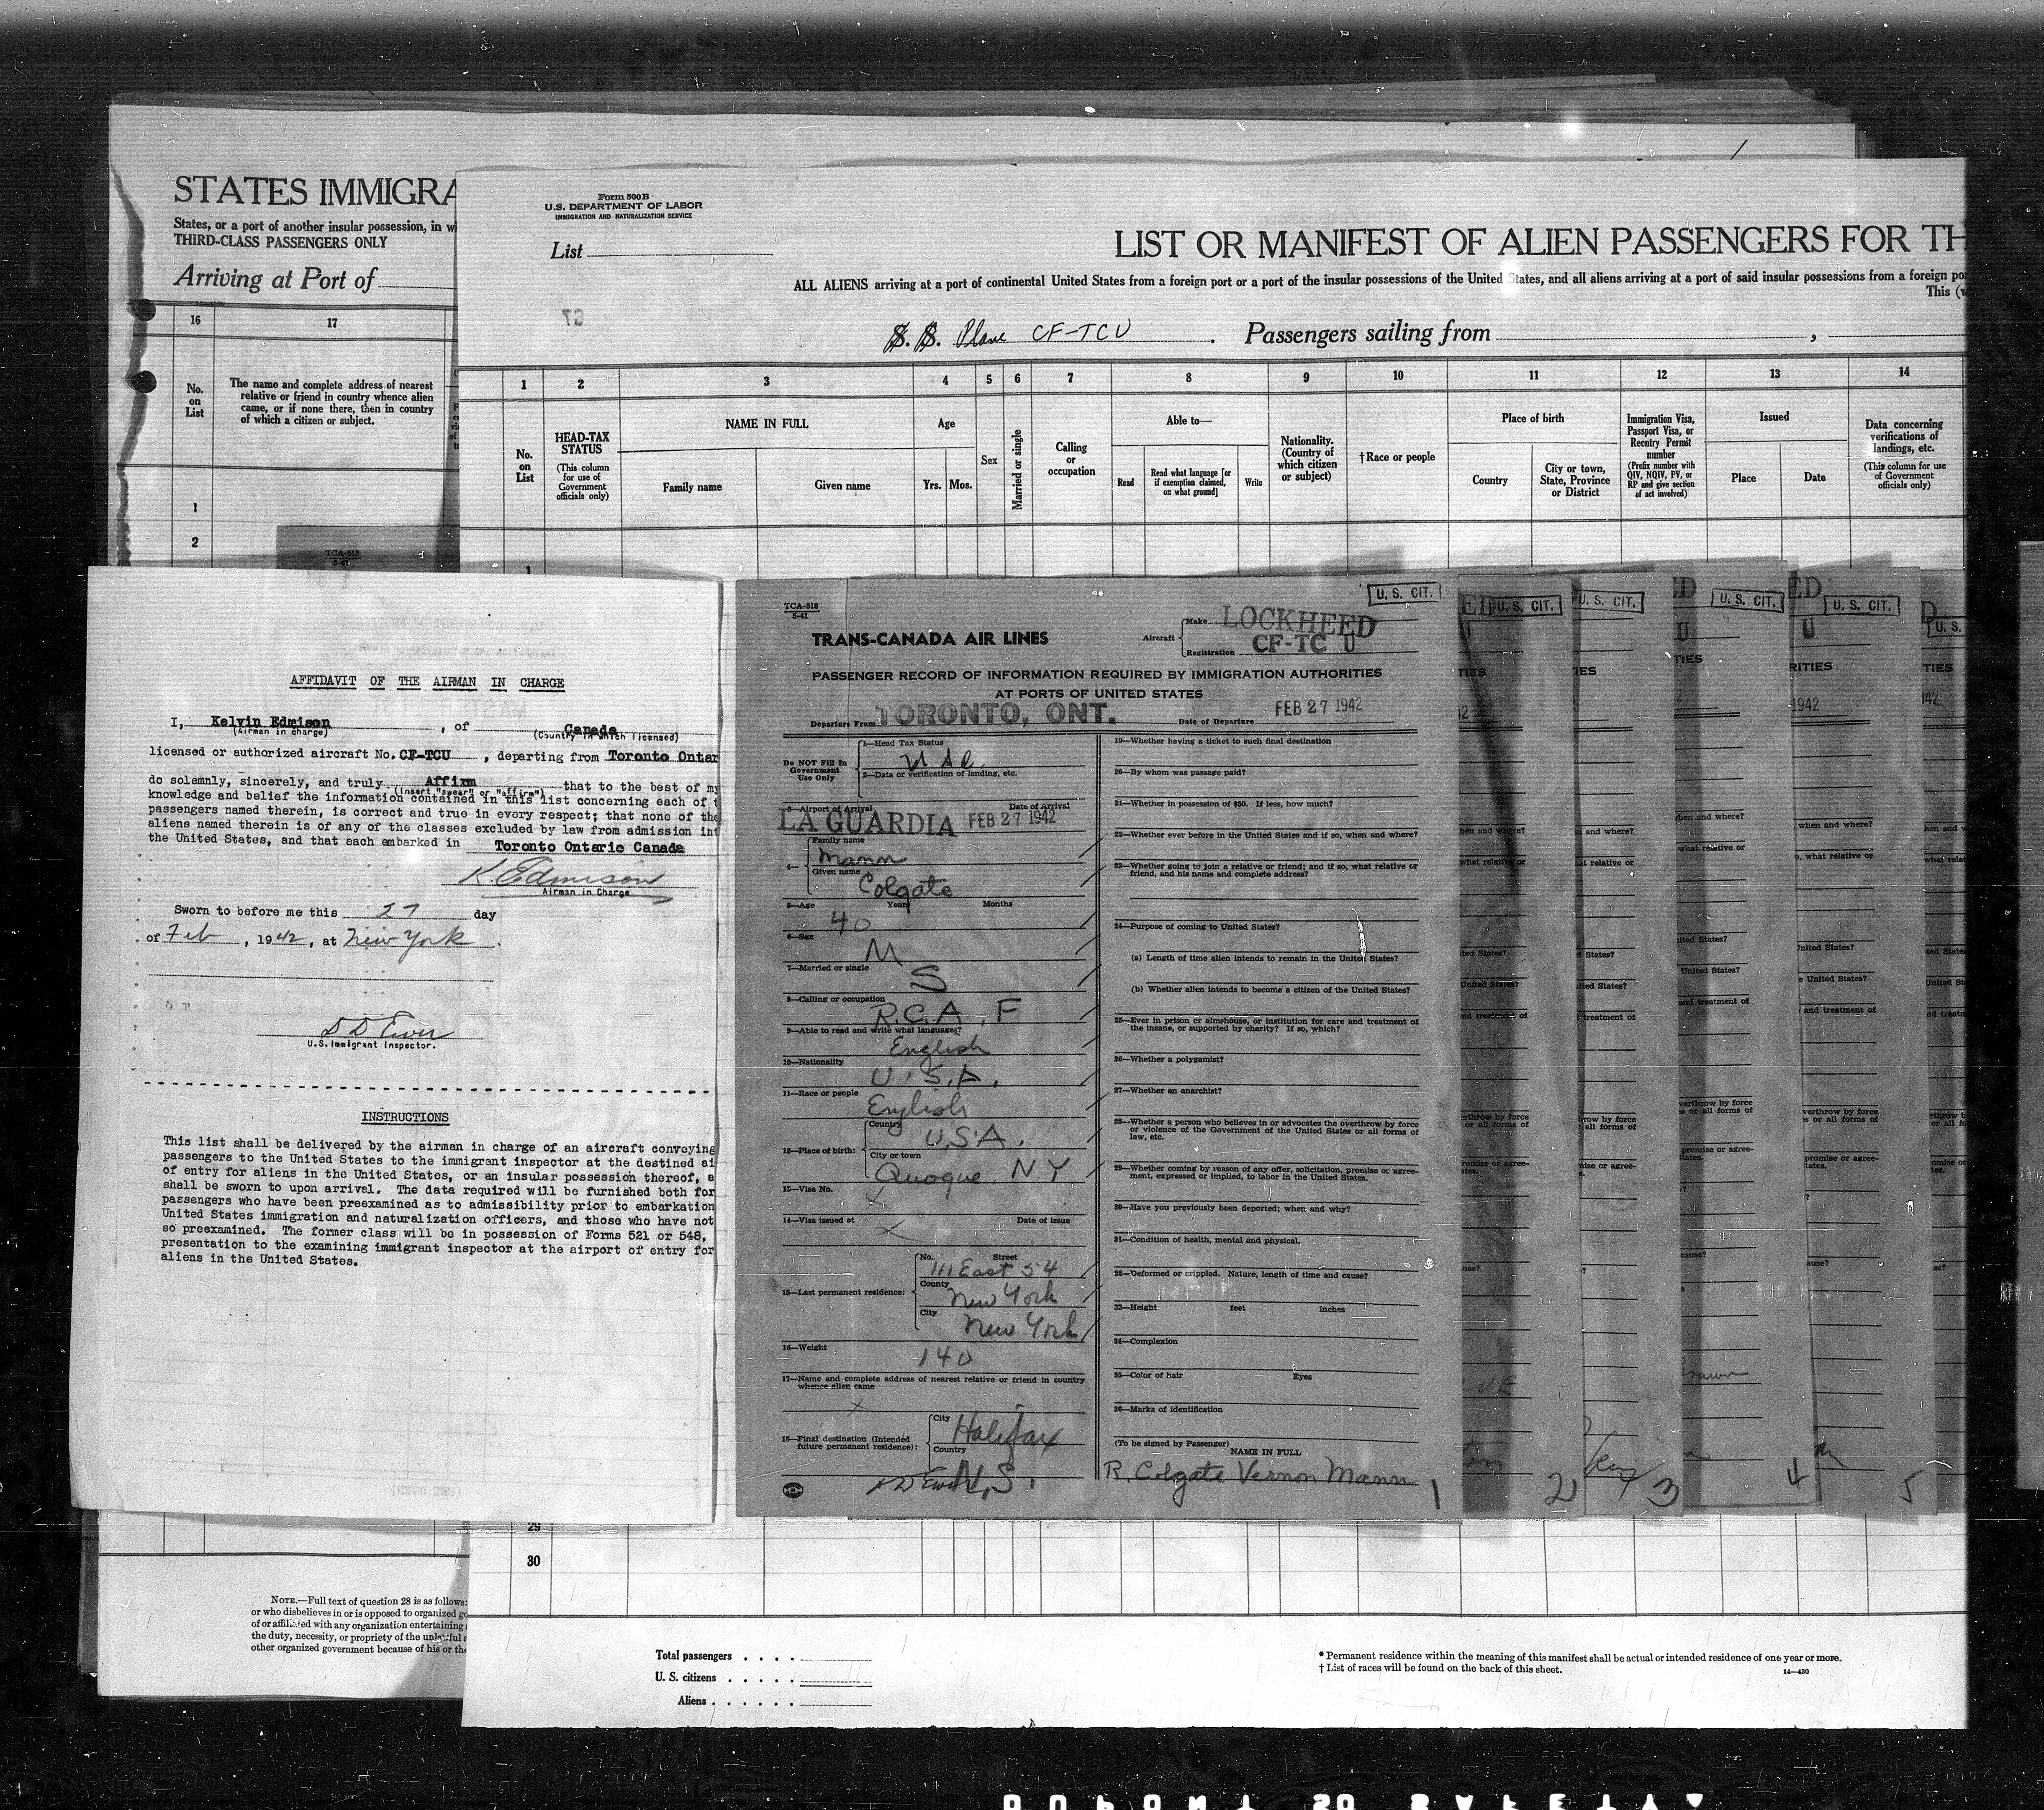 STATES IMMIGRA
States, or a port of another insular possession, in w
THIRD-CLASS PASSENGERS ONLY
Arriving at Port of
16
17
No.
on
List
The name and complete address of nearest
relative or friend in country whence alien
came, or if none there, then in country
of which a citizen or subject.
1
2
TCA-518
5-41
Form 500 B
U.S. DEPARTMENT OF LABOR
IMMIGRATION AND NATURALIZATION SERVICE
List
LIST OR MANIFEST OF ALIEN PASSENGERS FOR TH
ALL ALIENS arriving at a port of continental United States from a foreign port or a port of the insular possessions of the United States, and all aliens arriving at a port of said insular possessions from a foreign po
This (w
67
S. S. Plane CF-TCU . Passengers sailing from ,
1 2 3 4 5 6 7 8 9 10 11 12 13 14
No.
on
List
HEAD-TAX
STATUS
(This column
for use of
Government
officials only)
NAME IN FULL
Family name
Given name
Age
Yrs. Mos.
Sex
Married or single
Calling
or
occupation
Able to—
Read
Read what language [or
if exemption claimed,
on what ground]
Write
Nationality.
(Country of
which citizen
or subject)
†Race or people
Place of birth
Country
City or town,
State, Province
or District
Immigration Visa,
Passport Visa, or
Reentry Permit
number
(Prefix number with
QIV, NQIV, PV, or
RP and give section
of act involved)
Issued
Place
Date
Data concerning
verifications of
landings, etc.
(This column for use
of Government
officials only)
1
AFFIDAVIT OF THE AIRMAN IN CHARGE
I, Kelvin Edmison , of Canada
(Airman in charge) (Country in which licensed)
licensed or authorized aircraft No. CF-TCU , departing from Toronto Ontar
do solemnly, sincerely, and truly Affirm that to the best of my
(Insert "swear" or "affirm")
knowledge and belief the information contained in this list concerning each of t
passengers named therein, is correct and true in every respect; that none of the
aliens named therein is of any of the classes excluded by law from admission int
the United States, and that each embarked in Toronto Ontario Canada
K. Edmison
Airman in Charge
Sworn to before me this 27 day
of Feb , 1942, at New York .
D D Ewer
U.S. Immigrant Inspector.
INSTRUCTIONS
This list shall be delivered by the airman in charge of an aircraft conveying
passengers to the United States to the immigrant inspector at the destined ai
of entry for aliens in the United States, or an insular possession thereof, a
shall be sworn to upon arrival. The data required will be furnished both for
passengers who have been preexamined as to admissibility prior to embarkation
United States immigration and naturalization officers, and those who have not
so preexamined. The former class will be in possession of Forms 521 or 548,
presentation to the examining immigrant inspector at the airport of entry for
aliens in the United States.
TCA-518
5-41
U. S. CIT.
TRANS-CANADA AIR LINES
Aircraft
Make LOCKHEED
Registration CF-TC U
PASSENGER RECORD OF INFORMATION REQUIRED BY IMMIGRATION AUTHORITIES
AT PORTS OF UNITED STATES
Departure From TORONTO, ONT. Date of Departure FEB 27 1942
Do NOT Fill In
Government
Use Only
1—Head Tax Status
U S C.
2—Data or verification of landing, etc.
3—Airport of Arrival Date of Arrival
LA GUARDIA FEB 27 1942
4—
Family name
Mann
Given name
Colgate
5—Age Years Months
40
6—Sex
M
7—Married or single
S
8—Calling or occupation
R.C.A.F
9—Able to read and write what languages?
English
10—Nationality
U.S.A.
11—Race or people
English
12—Place of birth:
Country
U.S.A.
City or town
Quogue. N.Y
13—Visa No.
X
14—Visa issued at Date of issue
X
15—Last permanent residence:
No. Street
111 East 54
County
New York
City
New York
16—Weight
140
17—Name and complete address of nearest relative or friend in country
whence alien came
X
18—Final destination (Intended
future permanent residence):
City
Halifax
Country
N.S.
D D Ewer
19—Whether having a ticket to such final destination
20—By whom was passage paid?
21—Whether in possession of $50. If less, how much?
22—Whether ever before in the United States and if so, when and where?
23—Whether going to join a relative or friend; and if so, what relative or
friend, and his name and complete address?
24—Purpose of coming to United States?
(a) Length of time alien intends to remain in the United States?
(b) Whether alien intends to become a citizen of the United States?
25—Ever in prison or almshouse, or institution for care and treatment of
the insane, or supported by charity? If so, which?
26—Whether a polygamist?
27—Whether an anarchist?
28—Whether a person who believes in or advocates the overthrow by force
or violence of the Government of the United States or all forms of
law, etc.
29—Whether coming by reason of any offer, solicitation, promise or agree-
ment, expressed or implied, to labor in the United States.
30—Have you previously been deported; when and why?
31—Condition of health, mental and physical.
32—Deformed or crippled. Nature, length of time and cause?
33—Height feet inches
34—Complexion
35—Color of hair Eyes
36—Marks of identification
(To be signed by Passenger)
NAME IN FULL
R. Colgate Vernon Mann
1
U. S. CIT.
2
U. S. CIT.
3
U. S. CIT.
4
U. S. CIT.
5
U. S.
29
30
NOTE.—Full text of question 28 is as follows:
or who disbelieves in or is opposed to organized go
of or affiliated with any organization entertaining
the duty, necessity, or propriety of the unlawful
other organized government because of his or the
Total passengers . . . .
U. S. citizens . . . . .
Aliens . . . . . .
* Permanent residence within the meaning of this manifest shall be actual or intended residence of one year or more.
† List of races will be found on the back of this sheet.
14—430